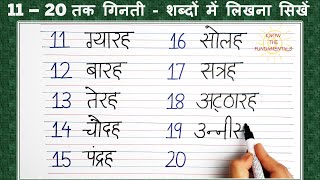 11 – 20 तक गिनती - शब्दों में लिखना सिखें
KNOW THE FUNDAMENTALS
11 ग्यारह 16 सोलह
12 बारह 17 सत्रह
13 तेरह 18 अट्ठारह
14 चौदह 19 उन्नीस
15 पंद्रह 20